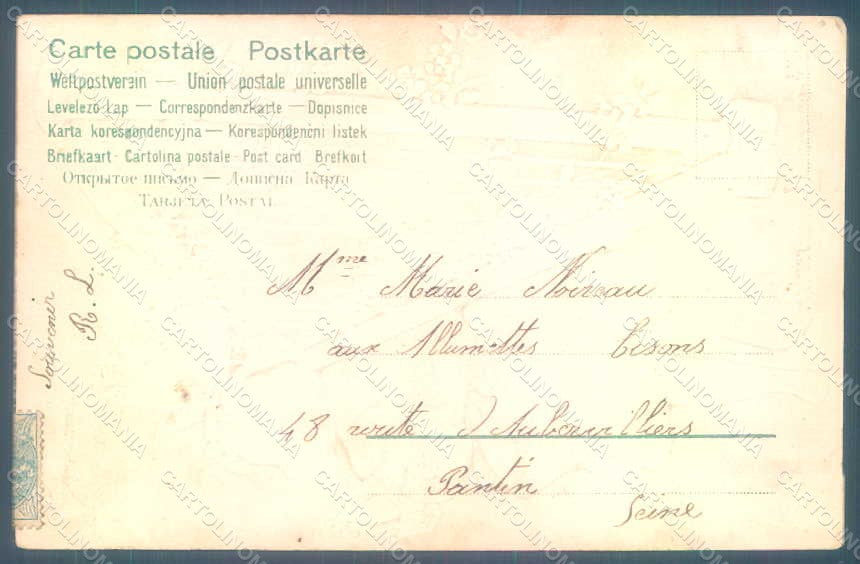 Carte postale Postkarte
Weltpostverein — Union postale universelle
Levelezö Lap — Correspondenzkarte — Dopisnice
Karta korespondencyjna — Korespondenčni listek
Briefkaart - Cartolina postale - Post card Brefkort
Открытое письмо — Дописна Карта
TARJETA POSTAL
Souvenir
R. L.
Mme Marie Noireau
aux Allumettes
48 route d'Aubervilliers
Pantin
Seine
CARTOLINOMANIA